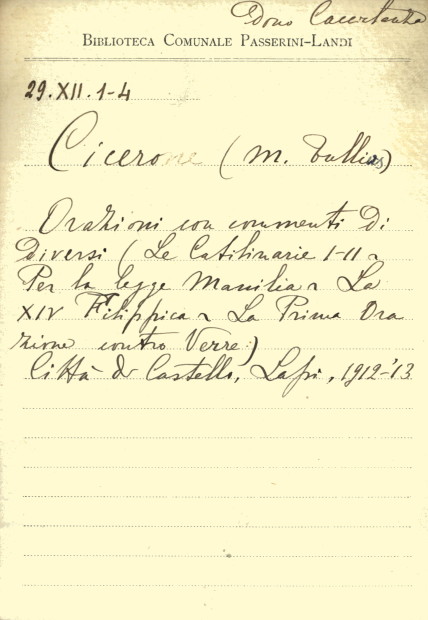 Dono
BIBLIOTECA COMUNALE PASSERINI-LANDI
29.XII.1-4
Cicerone (M. Tullius)
Orazioni con commenti di
diversi (Le Catilinarie I-II ~
Per la legge Manilia ~ La
XIV Filippica ~ La Prima Ora
zione contro Verre)
Città di Castello, Lapi, 1912-'13